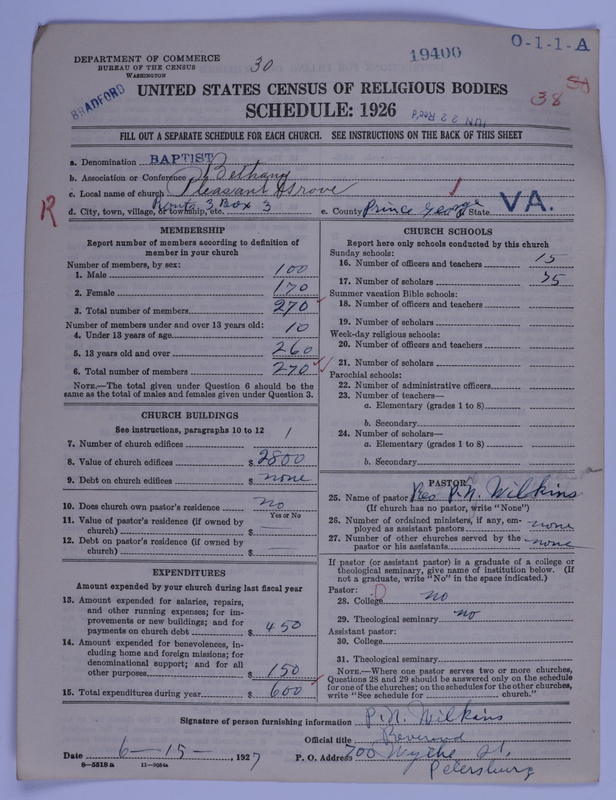 DEPARTMENT OF COMMERCE
BUREAU OF THE CENSUS
WASHINGTON
30
19400
O-1-1-A
BRADFORD
UNITED STATES CENSUS OF RELIGIOUS BODIES
38
SCHEDULE: 1926
JUN 22 Rec'd
FILL OUT A SEPARATE SCHEDULE FOR EACH CHURCH. SEE INSTRUCTIONS ON THE BACK OF THIS SHEET
a. Denomination BAPTIST
b. Association or Conference Bethany
c. Local name of church Pleasant Grove
R
d. City, town, village, or township, etc. Route 3, Box 3
e. County Prince George State VA.
MEMBERSHIP
Report number of members according to definition of
member in your church
Number of members, by sex:
1. Male 100
2. Female 170
3. Total number of members 270
Number of members under and over 13 years old:
4. Under 13 years of age 10
5. 13 years old and over 260
6. Total number of members 270
NOTE.—The total given under Question 6 should be the
same as the total of males and females given under Question 3.
CHURCH BUILDINGS
See instructions, paragraphs 10 to 12
7. Number of church edifices 1
8. Value of church edifices $ 2800
9. Debt on church edifices $ none
10. Does church own pastor's residence no
Yes or No
11. Value of pastor's residence (if owned by
church) $
12. Debt on pastor's residence (if owned by
church) $
EXPENDITURES
Amount expended by your church during last fiscal year
13. Amount expended for salaries, repairs,
and other running expenses; for im-
provements or new buildings; and for
payments on church debt $ 450
14. Amount expended for benevolences, in-
cluding home and foreign missions; for
denominational support; and for all
other purposes $ 150
15. Total expenditures during year $ 600
CHURCH SCHOOLS
Report here only schools conducted by this church
Sunday schools:
16. Number of officers and teachers 15
17. Number of scholars 55
Summer vacation Bible schools:
18. Number of officers and teachers
19. Number of scholars
Week-day religious schools:
20. Number of officers and teachers
21. Number of scholars
Parochial schools:
22. Number of administrative officers
23. Number of teachers—
a. Elementary (grades 1 to 8)
b. Secondary
24. Number of scholars—
a. Elementary (grades 1 to 8)
b. Secondary
PASTOR
25. Name of pastor Rev P. N. Wilkins
(If church has no pastor, write "None")
26. Number of ordained ministers, if any, em-
ployed as assistant pastors none
27. Number of other churches served by the
pastor or his assistants none
If pastor (or assistant pastor) is a graduate of a college or
theological seminary, give name of institution below. (If
not a graduate, write "No" in the space indicated.)
Pastor:
28. College no
29. Theological seminary no
Assistant pastor:
30. College
31. Theological seminary
NOTE.—Where one pastor serves two or more churches,
Questions 28 and 29 should be answered only on the schedule
for one of the churches; on the schedules for the other churches,
write "See schedule for church."
Signature of person furnishing information P. N. Wilkins
Official title Reverend
Date 6-15-, 1927 P. O. Address 700 Wythe St,
8-5518a
Petersburg